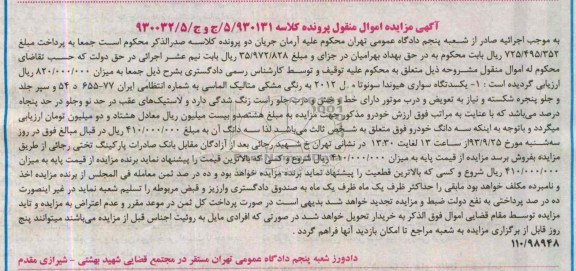 آگهی مزایده اموال منقول پرونده کلاسه ۵/۹۳۰۱۳۱/ج و ج/۹۳۰۰۳۲/۵
به موجب اجرائیه صادر از شعبه پنجم دادگاه عمومی تهران محکوم علیه آرمان جریان دو پرونده کلاسه صدرالذکر محکوم است جمعا به پرداخت مبلغ
۷۲۵/۴۹۵/۳۵۲ ریال بابت محکوم به در حق بهداد بهرامیان در جزای و مبلغ ۳۵/۹۷۲/۸۲۸ ریال بابت نیم عشر اجرائی در حق دولت که حسب تقاضای
محکوم له اموال منقول مشروحه ذیل متعلق به محکوم علیه توقیف و توسط کارشناس رسمی دادگستری بشرح ذیل جمعا به میزان ۸۲۰/۰۰۰/۰۰۰ ریال
ارزیابی گردیده است : ۱- یکدستگاه سواری هیوندا سوناتا مدل ۲۰۱۲ به رنگی مشکی متالیک الماسی به شماره انتظامی ایران ۷۷-۶۵۵ د ۵۴ و سپر جلد
و جلو پنجره شکسته و نیاز به تعویض و درب موتور دارای خط و درب جلو راست زنگ شدگی دارد و لاستیک‌های عقب در حد نو وجلو در حد پنجاه
درصد می‌باشد که با عنایت به مراتب فوق ارزش خودرو مذکور جهت مزایده به مبلغ هشتصدو بیست میلیون ریال معادل هشتاد و دو میلیون تومان ارزیابی
میگردد و باتوجه به اینکه سه دانگ خودرو فوق متعلق به شخص ثالث می‌باشد لذا سه دانگ آن به مبلغ ۴۱۰/۰۰۰/۰۰۰ ریال در قبال مبالغ فوق در روز
سه‌شنبه مورخ ۹۳/۹/۲۵ از ساعت ۱۳ لغایت ۱۳:۳۰ در نشانی تهران خ شهید رجائی بعد از آزادگان مقابل بانک صادرات پارکینگ تختی رجائی از طریق
مزایده بفروش برسد مزایده از قیمت پایه به میزان ۴۱۰/۰۰۰/۰۰۰ ریال شروع و کسی که بالاترین قیمت را پیشنهاد نماید برنده مزایده از قیمت پایه به میزان
۴۱۰/۰۰۰/۰۰۰ ریال شروع و کسی که بالاترین قطعیت را پیشنهاد نماید برنده مزایده خواهد بود و ده در صد ثمن معامله فی المجلس از برنده مزایده اخذ
و نامبرده مکلف خواهد بود مابقی را حداکثر ظرف یک ماه ظرف یک ماه به صندوق دادگستری واریز و قبض مربوطه را تسلیم شعبه نماید در غیر اینصورت
ده در صد پرداختی به نفع دولت ضبط و مزایده تجدید خواهد شد بدیهی است در صورت پرداخت کل ثمن در موعد مقرر و عدم اعتراض به مزایده و تاید
مزایده توسط مقام قضایی اموال فوق الذکر به خریدار تحویل خواهد شد در صورتی که افرادی مایل به روئیت اجناس قبل از مزایده می‌باشند میتوانند پنج
روز قبل از برگزاری مزایده به شعبه مراجع تا امکان بازدید آنها فراهم گردد .
۱۱۰/۹۸۹۴۸
دادورز شعبه پنجم دادگاه عمومی تهران مستقر در مجتمع قضایی شهید بهشتی - شیرازی مقدم